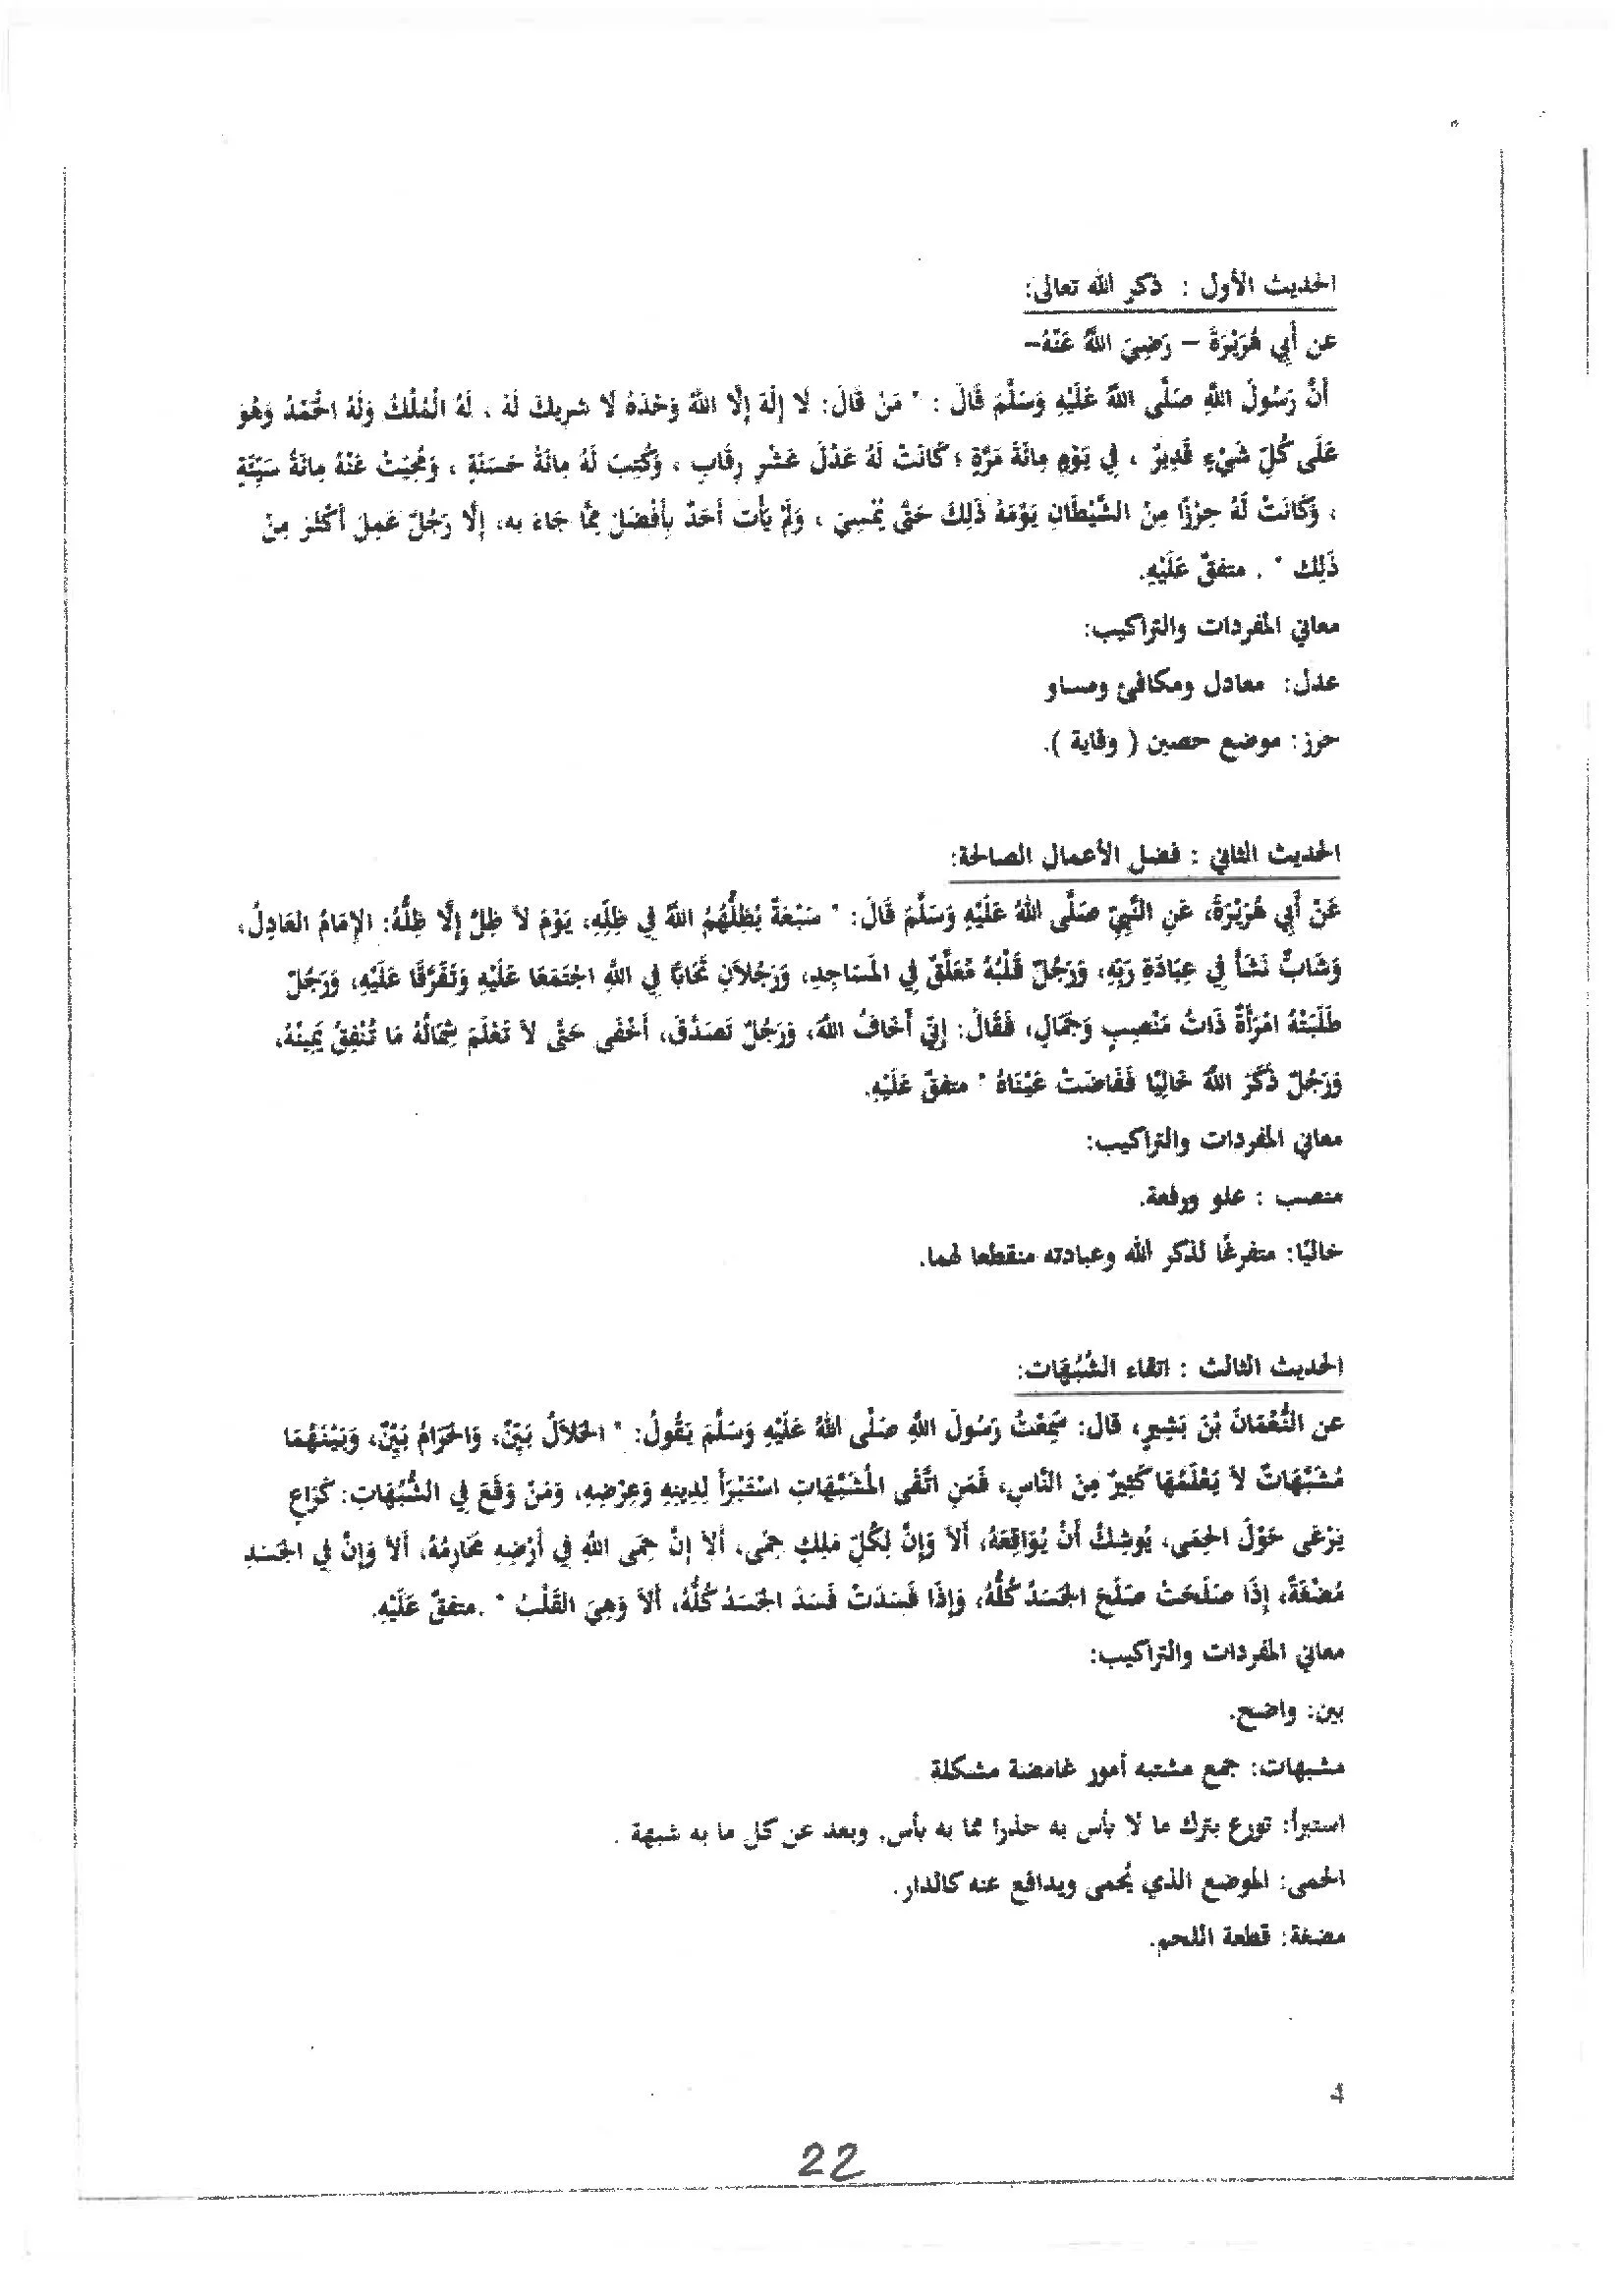 الحديث الأول : ذكر الله تعالى:
عن أَبي هُرَيْرَةَ – رَضِيَ اللَّهُ عَنْهُ–
أَنَّ رَسُولَ اللَّهِ صَلَّى اللَّهُ عَلَيْهِ وَسَلَّمَ قَالَ : " مَنْ قَالَ: لَا إِلَهَ إِلَّا اللَّهُ وَحْدَهُ لَا شريكَ لَهُ ، لَهُ الْمُلْكُ وَلَهُ الْحَمْدُ وَهُوَ
عَلَى كُلِّ شَيْءٍ قَدِيرٌ ، فِي يَوْمٍ مِائَةَ مَرَّةٍ ؛ كَانَتْ لَهُ عَدْلَ عَشْرِ رِقَابٍ ، وَكُتِبَ لَهُ مِائَةُ حَسَنَةٍ ، وَمُحِيَتْ عَنْهُ مِائَةُ سَيِّئَةٍ
، وَكَانَتْ لَهُ حِرْزًا مِنْ الشَّيْطَانِ يَوْمَهُ ذَلِكَ حَتَّى يُمْسِيَ ، وَلَمْ يَأْتِ أَحَدٌ بِأَفْضَلَ مِمَّا جَاءَ بِهِ، إِلَّا رَجُلٌ عَمِلَ أَكْثَرَ مِنْ
ذَلِك " . متفقٌ عَلَيْهِ.
معاني المفردات والتراكيب:
عدل: معادل ومكافئ ومساو
حرز: موضع حصين ( وقاية ).
الحديث الثاني : فضل الأعمال الصالحة:
عَنْ أَبِي هُرَيْرَةَ، عَنِ النَّبِيِّ صَلَّى اللهُ عَلَيْهِ وَسَلَّمَ قَالَ: " سَبْعَةٌ يُظِلُّهُمُ اللَّهُ فِي ظِلِّهِ، يَوْمَ لاَ ظِلَّ إِلَّا ظِلُّهُ: الإِمَامُ العَادِلُ،
وَشَابٌّ نَشَأَ فِي عِبَادَةِ رَبِّهِ، وَرَجُلٌ قَلْبُهُ مُعَلَّقٌ فِي المَسَاجِدِ، وَرَجُلاَنِ تَحَابَّا فِي اللَّهِ اجْتَمَعَا عَلَيْهِ وَتَفَرَّقَا عَلَيْهِ، وَرَجُلٌ
طَلَبَتْهُ امْرَأَةٌ ذَاتُ مَنْصِبٍ وَجَمَالٍ، فَقَالَ: إِنِّي أَخَافُ اللَّهَ، وَرَجُلٌ تَصَدَّقَ، أَخْفَى حَتَّى لاَ تَعْلَمَ شِمَالُهُ مَا تُنْفِقُ يَمِينُهُ،
وَرَجُلٌ ذَكَرَ اللَّهَ خَالِيًا فَفَاضَتْ عَيْنَاهُ " متفقٌ عَلَيْهِ.
معاني المفردات والتراكيب:
منصب : علو ورفعة.
خاليًا: متفرغًا لذكر الله وعبادته منقطعا لهما.
الحديث الثالث : اتقاء الشُّبُهَات:
عن النُّعْمَانَ بْنَ بَشِيرٍ، قَالَ: سَمِعْتُ رَسُولَ اللَّهِ صَلَّى اللهُ عَلَيْهِ وَسَلَّمَ يَقُولُ: " الحَلاَلُ بَيِّنٌ، وَالحَرَامُ بَيِّنٌ، وَبَيْنَهُمَا
مُشَبَّهَاتٌ لاَ يَعْلَمُهَا كَثِيرٌ مِنَ النَّاسِ، فَمَنِ اتَّقَى المُشَبَّهَاتِ اسْتَبْرَأَ لِدِينِهِ وَعِرْضِهِ، وَمَنْ وَقَعَ فِي الشُّبُهَاتِ: كَرَاعٍ
يَرْعَى حَوْلَ الحِمَى، يُوشِكُ أَنْ يُوَاقِعَهُ، أَلاَ وَإِنَّ لِكُلِّ مَلِكٍ حِمًى، أَلاَ إِنَّ حِمَى اللَّهِ فِي أَرْضِهِ مَحَارِمُهُ، أَلاَ وَإِنَّ فِي الجَسَدِ
مُضْغَةً، إِذَا صَلَحَتْ صَلَحَ الجَسَدُ كُلُّهُ، وَإِذَا فَسَدَتْ فَسَدَ الجَسَدُ كُلُّهُ، أَلاَ وَهِيَ القَلْبُ " .متفقٌ عَلَيْهِ.
معاني المفردات والتراكيب:
بين: واضح.
مشبهات: جمع مشتبه أمور غامضة مشكلة
استبرأ: تورع بترك ما لا بأس به حذرا مما به بأس. وبعد عن كل ما به شبهة .
الحمى: الموضع الذي يُحمى ويدافع عنه كالدار.
مضغة: قطعة اللحم.
4
22